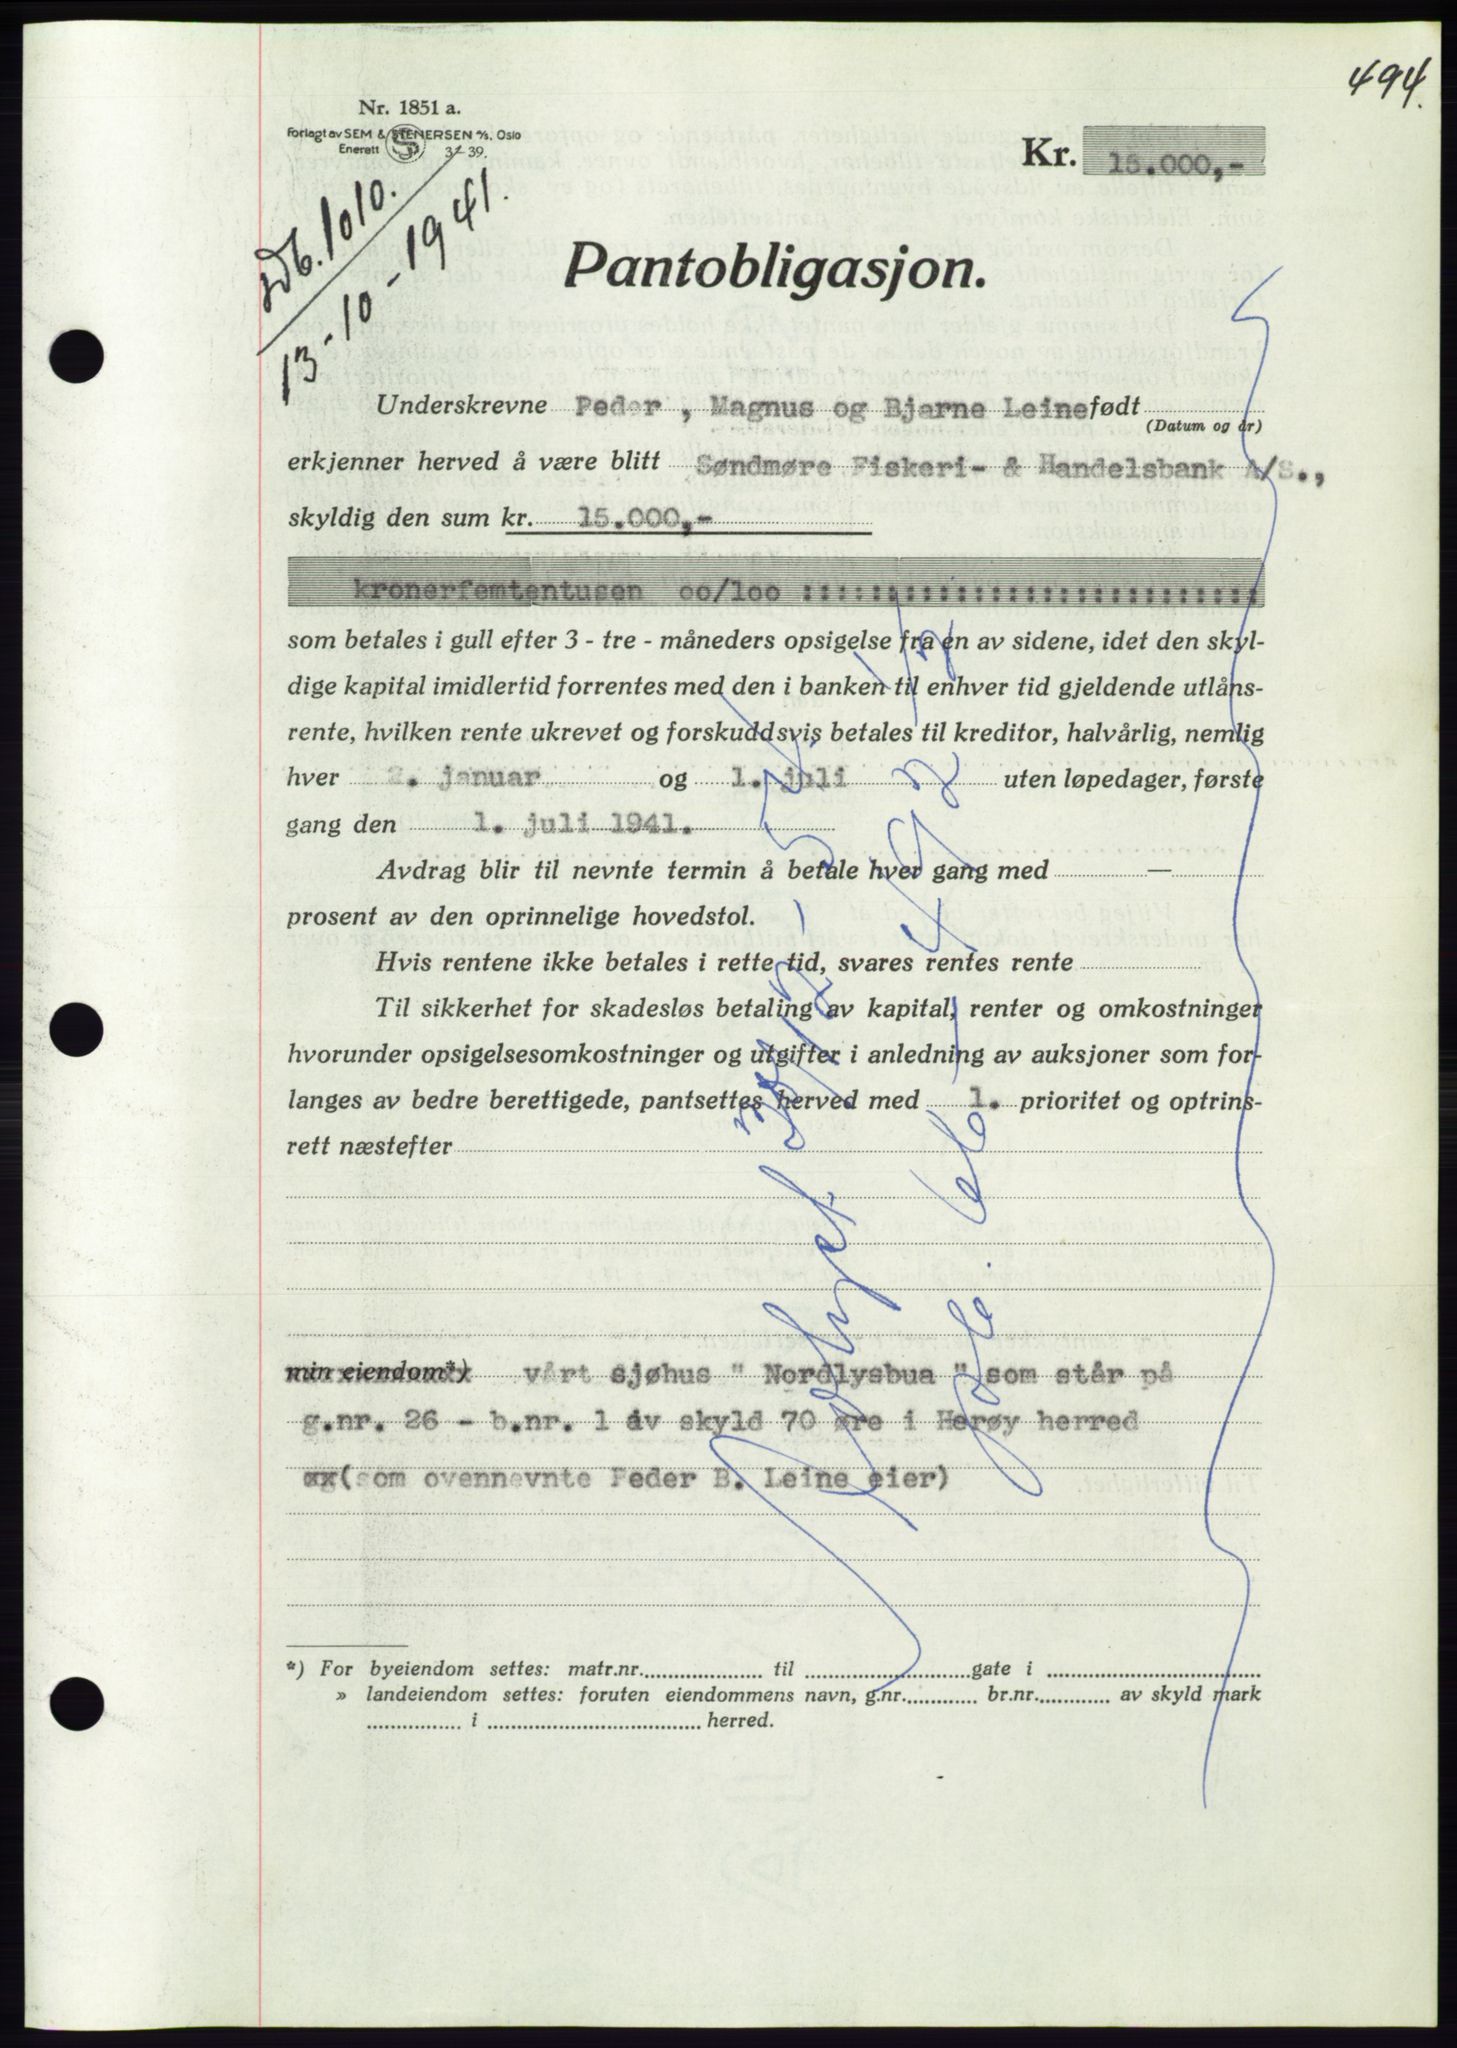 494.
Nr. 1851 a.
Forlagt av SEM & STENERSEN A/S, Oslo
Enerett 3 39.
Kr. 15.000,-
1010.
13-10-1941.
Pantobligasjon.
Underskrevne Peder, Magnus og Bjarne Leine født
(Datum og år)
erkjenner herved å være blitt Søndmøre Fiskeri- & Handelsbank A/S.,
skyldig den sum kr. 15.000,-
kronerfemtentusen oo/100 ::::::::::::::::::::::::::::::::
som betales i gull efter 3 - tre - måneders opsigelse fra en av sidene, idet den skyl-
dige kapital imidlertid forrentes med den i banken til enhver tid gjeldende utlåns-
rente, hvilken rente ukrevet og forskuddsvis betales til kreditor, halvårlig, nemlig
hver 2. januar og 1. juli uten løpedager, første
gang den 1. juli 1941.
Avdrag blir til nevnte termin å betale hver gang med —
prosent av den oprinnelige hovedstol.
Hvis rentene ikke betales i rette tid, svares rentes rente
Til sikkerhet for skadesløs betaling av kapital, renter og omkostninger
hvorunder opsigelsesomkostninger og utgifter i anledning av auksjoner som for-
langes av bedre berettigede, pantsettes herved med 1. prioritet og optrins-
rett næstefter
min eiendom*) vårt sjøhus " Nordlysbua " som står på
g.nr. 26 - b.nr. 1 av skyld 70 øre i Herøy herred
xx(som ovennevnte Peder B. Leine eier)
*) For byeiendom settes: matr.nr. til gate i
» landeiendom settes: foruten eiendommens navn, g.nr. br.nr. av skyld mark
i herred.